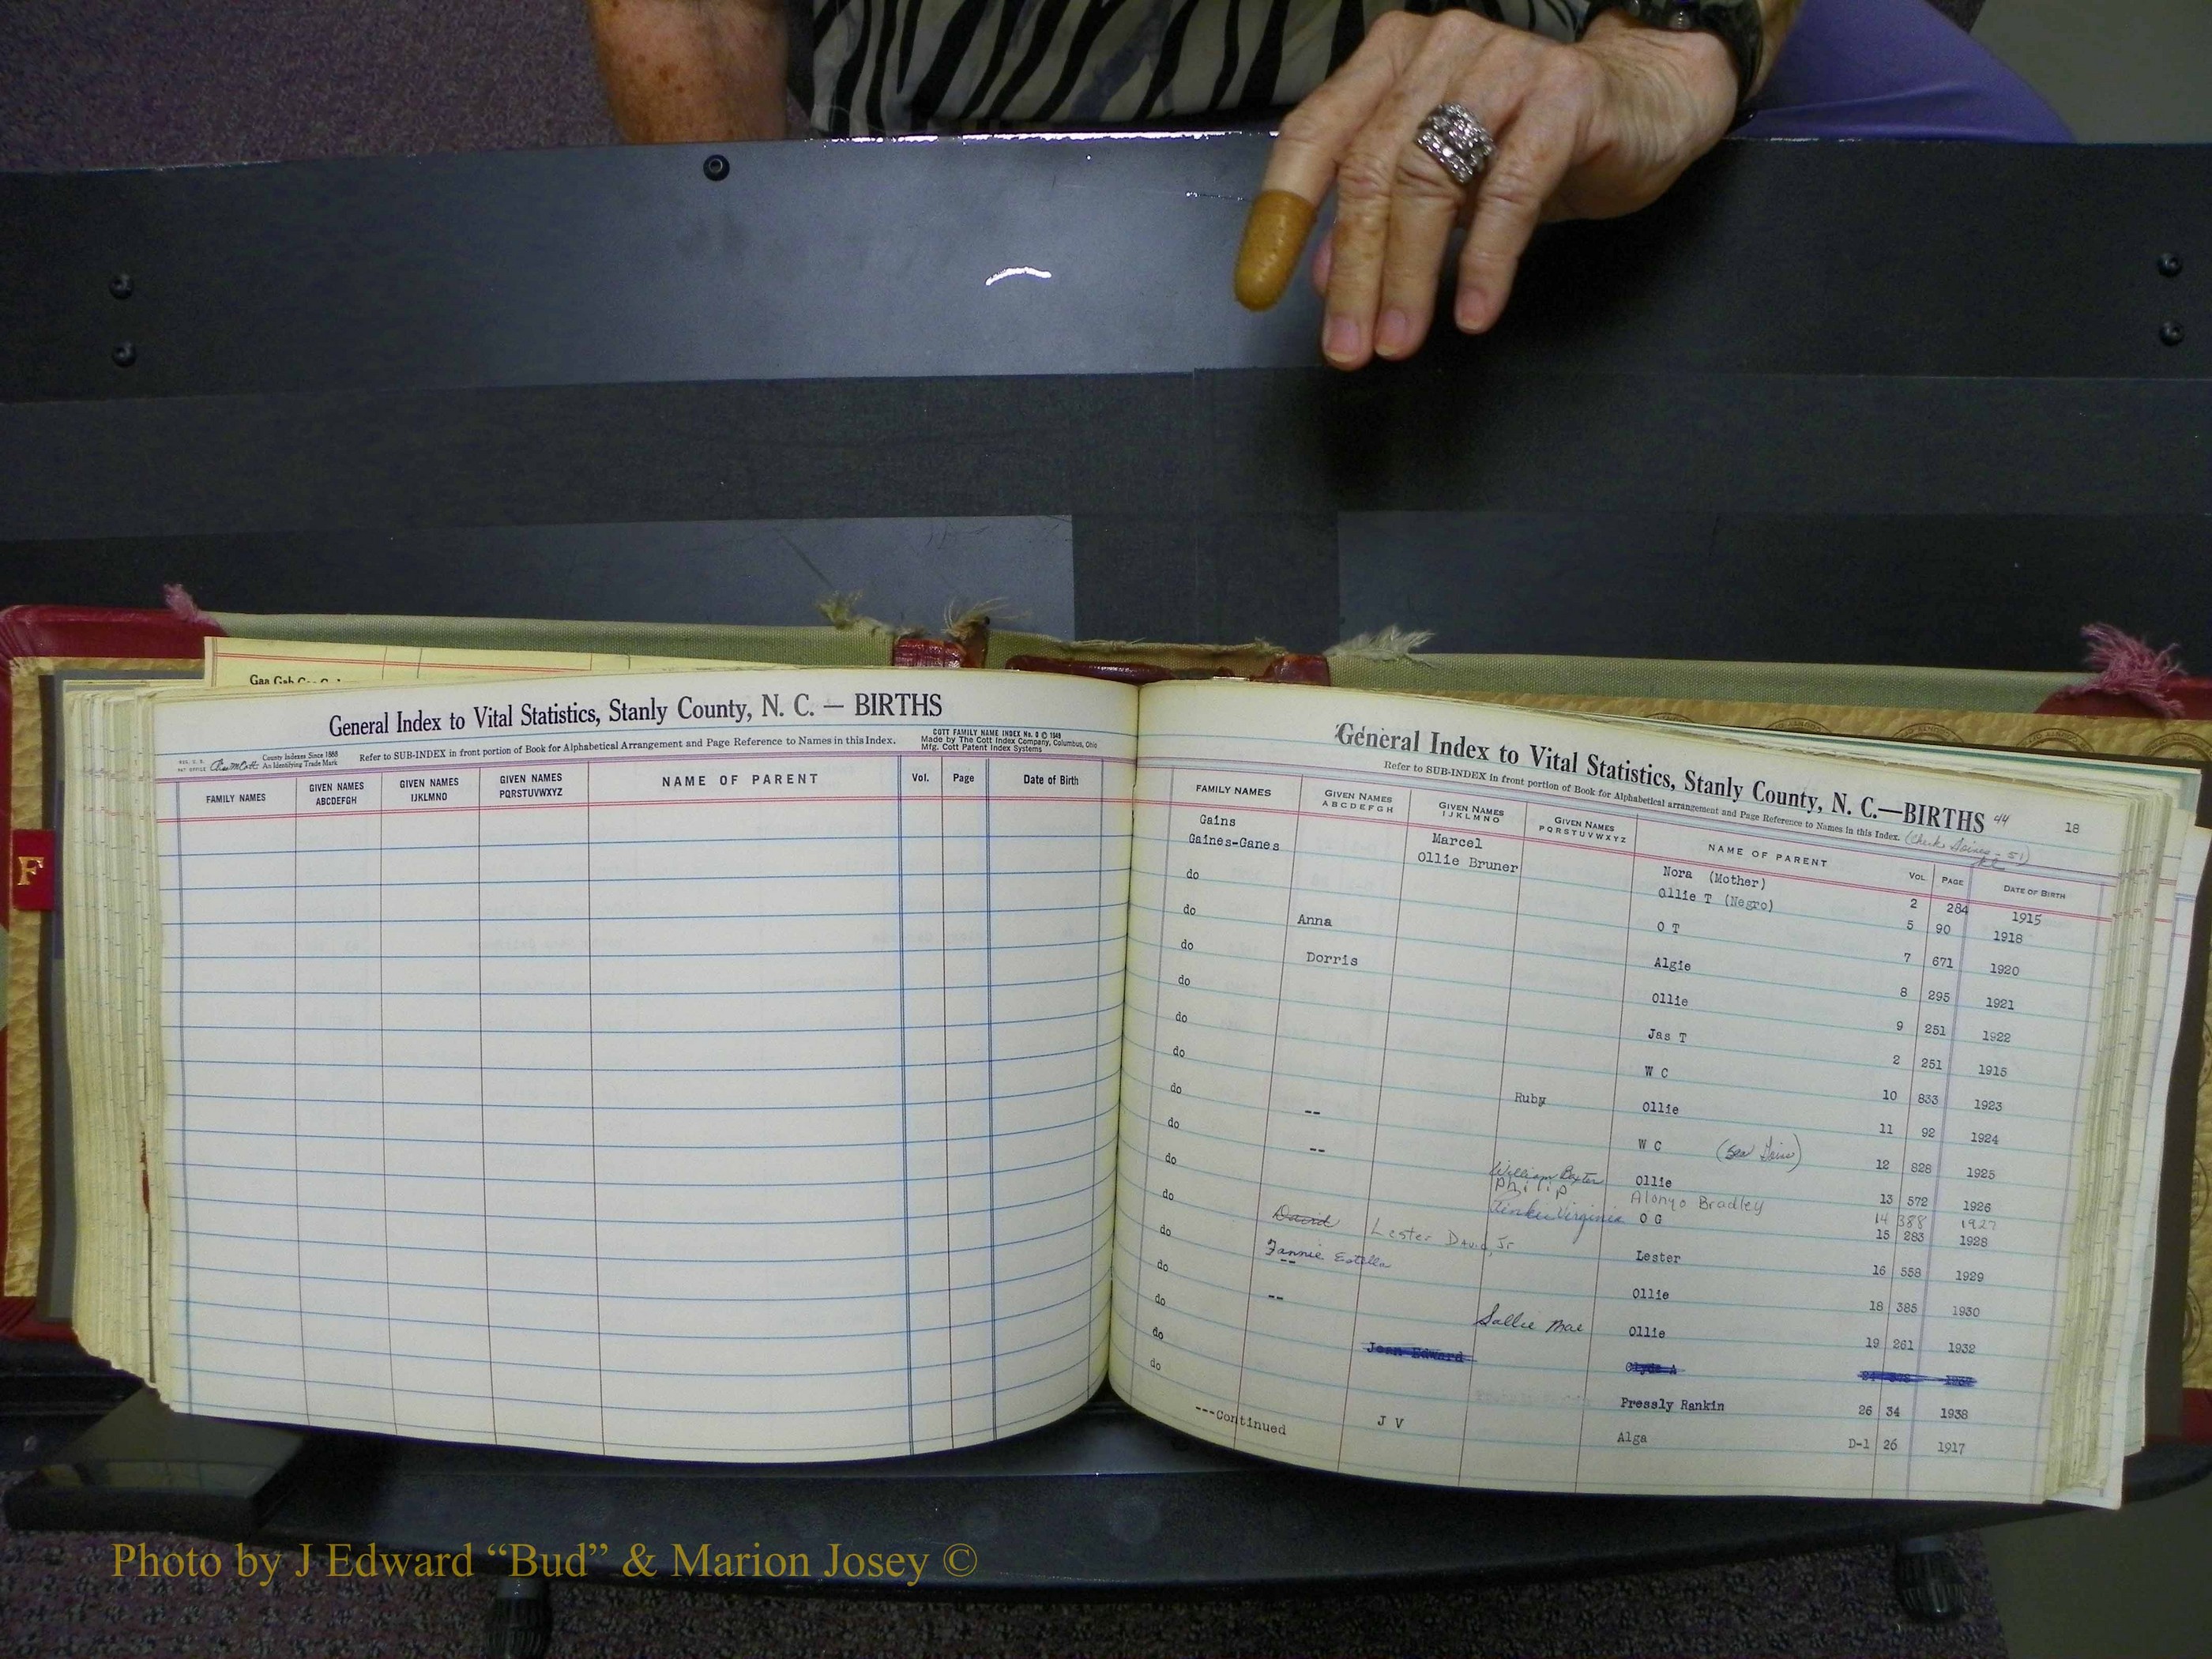 Gaa Gab Gac Gad
F
General Index to Vital Statistics, Stanly County, N. C. — BIRTHS
County Indexes Since 1888
An Identifying Trade Mark
Refer to SUB-INDEX in front portion of Book for Alphabetical Arrangement and Page Reference to Names in this Index.
COTT FAMILY NAME INDEX No. 9 © 1949
Made by The Cott Index Company, Columbus, Ohio
Mfg. Cott Patent Index Systems
FAMILY NAMES GIVEN NAMES ABCDEFGH GIVEN NAMES IJKLMNO GIVEN NAMES PQRSTUVWXYZ NAME OF PARENT Vol. Page Date of Birth
General Index to Vital Statistics, Stanly County, N. C.—BIRTHS 44 18
Refer to SUB-INDEX in front portion of Book for Alphabetical arrangement and Page Reference to Names in this Index.
FAMILY NAMES GIVEN NAMES ABCDEFGH GIVEN NAMES IJKLMNO GIVEN NAMES PQRSTUVWXYZ NAME OF PARENT VOL. PAGE DATE OF BIRTH
Gains Marcel Nora (Mother) 2 284 1915
Gaines-Ganes Ollie Bruner Ollie T (Negro) 5 90 1918
do O T 7 671 1920
do Anna Algie 8 295 1921
do Dorris Ollie 9 251 1922
do Jas T 2 251 1915
do W C 10 833 1923
do Ruby Ollie 11 92 1924
do -- W C 12 828 1925
do -- William Baxter Ollie 13 572 1926
Philip Alonyo Bradley 14 388 1927
do Virginia O G 15 283 1928
do David Lester David, Jr Lester 16 558 1929
do Fannie Estella -- Ollie 18 385 1930
do -- Sallie Mae Ollie 19 261 1932
do Jean Edward Clyde A
do Pressly Rankin 26 34 1938
do J V Alga D-1 26 1917
---Continued
Photo by J Edward “Bud” & Marion Josey ©